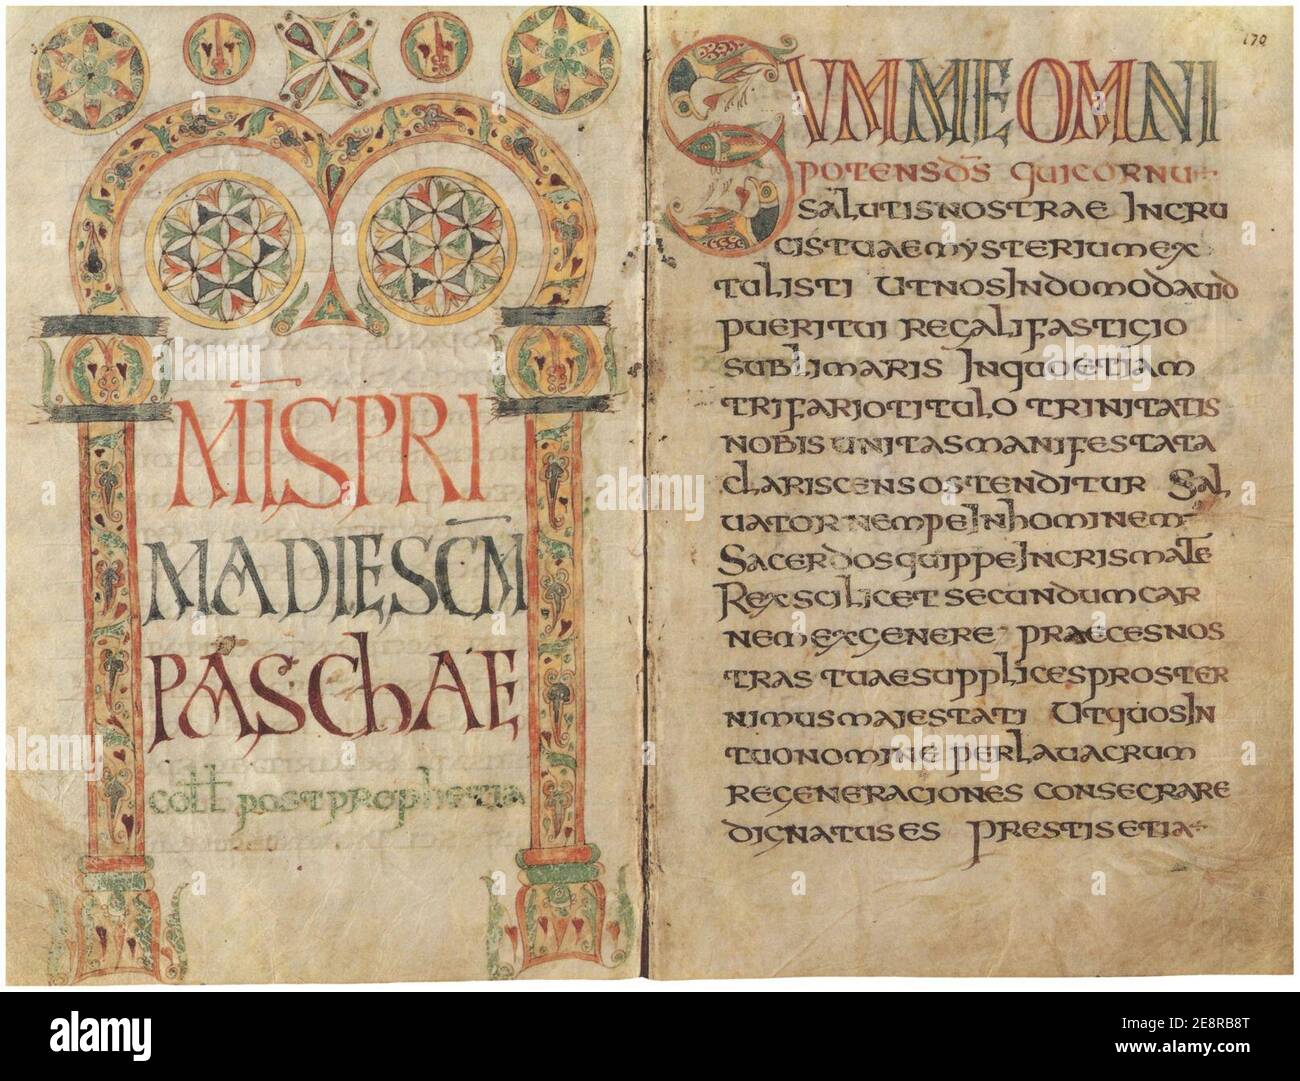 MIS PRI
MA DIE SCM
PASCHAE
coll post prophetia
170
SUMME OMNI
POTENS DS QUI CORNU
SALUTIS NOSTRAE IN CRU
CIS TUAE MYSTERIUM EX
TULISTI UT NOS IN DOMO DAUID
PUERI TUI REGALI FASTIGIO
SUBLIMARIS IN QUO ETIAM
TRIFARIO TITULO TRINITATIS
NOBIS UNITAS MANIFESTATA
CLARISCENS OSTENDITUR SAL
UATOR NEMPE IN HOMINEM
SACERDOS QUIPPE IN CRISMATE
REX SCILICET SECUNDUM CAR
NEM EX GENERE PRAECES NOS
TRAS TUAE SUPPLICES PROSTER
NIMUS MAIESTATI UT QUOS IN
TUO NOMINE PER LAUACRUM
REGENERACIONES CONSECRARE
DIGNATUS ES PRESTIS ETIA
alamy
Image ID: 2E8RB8T
www.alamy.com